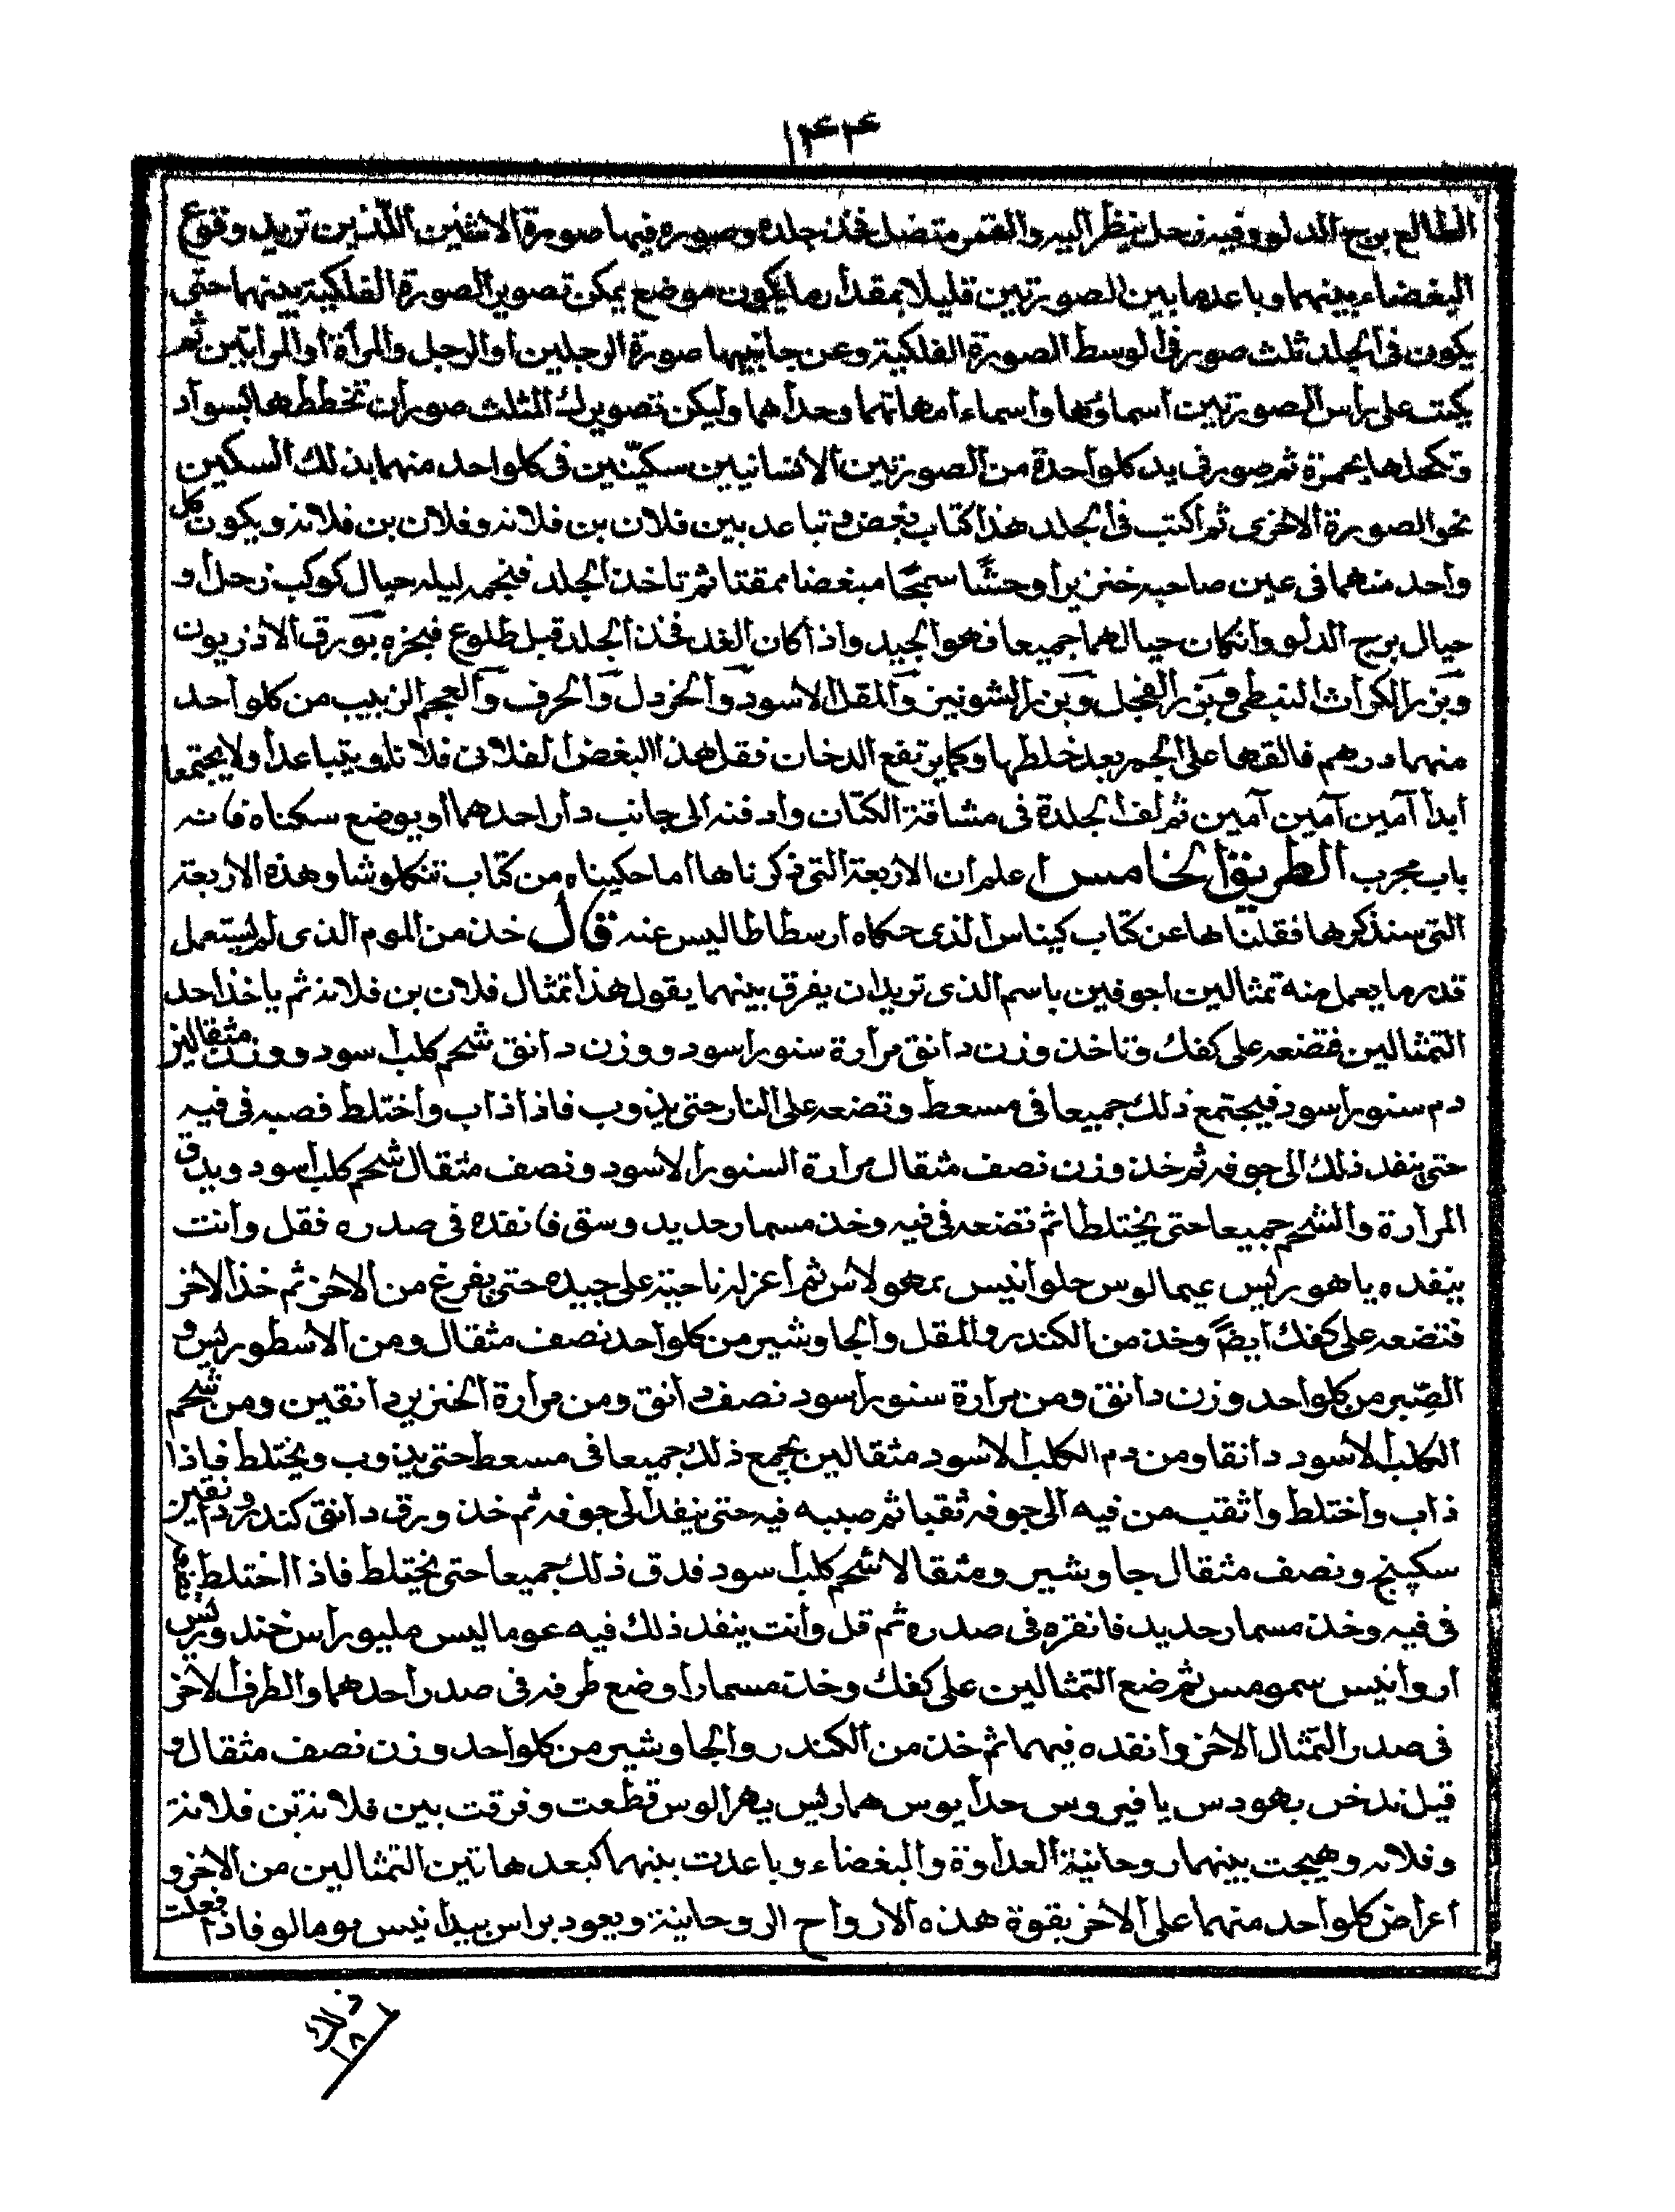 ١٤٤
الطالع برج الدلو وفيه زحل ينظر اليه والقمر متصل فخذ جلده وصوره فيها صورة الاثنين اللذين تريد وقوع
البغضاء بينهما وباعد ما بين الصورتين قليلا بمقدار ما يكون موضع يمكن تصوير الصورة الفلكية بينهما حتى
يكون فى الجلد ثلث صور فى الوسط الصورة الفلكية وعن جانبيها صورة الرجلين او الرجل والمرأة او المراتين ثم
يكتب على راس الصورتين اسماؤها واسماء امهاتهما وحداهما وليكن تصويرك الثلث صورات تخططها بسواد
وتكحلها بحمرة ثم صور فى يد كلواحدة من الصورتين الانسانيين سكيّنين فى كلواحد منهما بذلك السكين
نحو الصورة الاخرى ثم اكتب فى الجلد هذا كتاب بغض وتباعد بين فلان بن فلانه وفلان بن فلانه ويكون كل
واحد منهما فى عين صاحبه خنزيرا وحشًا سمجًا مبغضا ممقتا ثم تاخذ الجلد فينجمه ليله حيال كوكب زحل او
حيال برج الدلو وانكان حيالهما جميعا فهو الجيد واذا كان الغد فخذ الجلد قبل طلوع فبخره بورق الاذريون
وبزر الكراث النبطى وبزر الفجل وبزر الشونيز والمقل الاسود والخردل والحرف والعجم الزبيب من كلواحد
منهما درهم فالقها على الجمر بعد خلطها وكما يرتفع الدخان فقل هذا البغض لفلان فلانا ويتباعدا ولا يجتمعا
ابدا آمين آمين آمين ثم لف الجلدة فى مشاقة الكتان وادفنه الى جانب دار احدهما او بوضع سكناه فانه
باب مجرب الطريق الخامس اعلم ان الاربعة التى ذكرناها اما حكيناه من كتاب تنكلوشا وهذه الاربعة
التى سنذكرها فقلناها عن كتاب كيناس الذى حكاه ارسطاطاليس عنه قال خذ من الموم الذى لم يستعمل
قدر ما يعمل منه تمثالين اجوفين باسم الذى تريد ان يفرق بينهما يقول هذا تمثال فلان بن فلانه ثم ياخذ احد
التمثالين فتضعه على كفك وتاخذ وزن دانق مرارة سنور اسود ووزن دانق شحم كلب اسود ووزن مثقالين
دم سنور اسود فيجتمع ذلك جميعا فى مسعط وتضعه على النار حتى يذوب فاذا ذاب واختلط فصبه فى فيه
حتى ينفد ذلك الى جوفه ثم خذ وزن نصف مثقال مرارة السنور الاسود ونصف مثقال شحم كلب اسود ويدق
المرارة والشحم جميعا حتى يختلطا ثم تضعه فى فيه وخذ مسمار حديد وسق فانقده فى صدره فقل وانت
ينفده يا هوريس عيمالوس حلوانيس بمهولاس ثم اعزله ناحية على جيده حتى يفرغ من الاخر ثم خذ الاخر
فتضعه على كفك ايضًا وخذ من الكندر والمقل والجاوشير من كلواحد نصف مثقال ومن الاسطوريس و
الصِّبر من كلواحد وزن دانق ومن مرارة سنور اسود نصف دانق ومن مرارة الخنزير دانقين ومن شحم
الكلب الاسود دانقا ومن دم الكلب الاسود مثقالين يجمع ذلك جميعا فى مسعط حتى يذوب ويختلط فاذا
ذاب واختلط واثقب من فيه الى جوفه ثقبا ثم صببه فيه حتى ينفد الى جوفه ثم خذ ورق دانق كندر ودانقين
سكبينج ونصف مثقال جاوشير ومثقالا شحم كلب اسود فدق ذلك جميعا حتى يختلط فاذا اختلط فضعه
فى فيه وخذ مسمار حديد فانقره فى صدره ثم قل وانت ينفد ذلك فيه عوماليس مليوراس خندوريس
اروانيس سمومس ثم ضع التمثالين على كفك وخذ مسمارا وضع طرفه فى صدر احدهما والطرف الاخر
فى صدر التمثال الاخر وانقده فيهما ثم خذ من الكندر والجاوشير من كلواحد وزن نصف مثقال و
قيل ندخن بهودس يا فيروس حدايوس هماريس يهرالوس قطعت وفرقت بين فلانة بن فلانة
وفلانه وهيجت بينهما روحانية العداوة والبغضاء وباعدت بينهما كبعد هاتين التمثالين من الاخر و
اعراض كلواحد منهما على الاخر بقوة هذه الارواح الروحانية ويعود براس بيدانيس بومالو فاذا فعلت